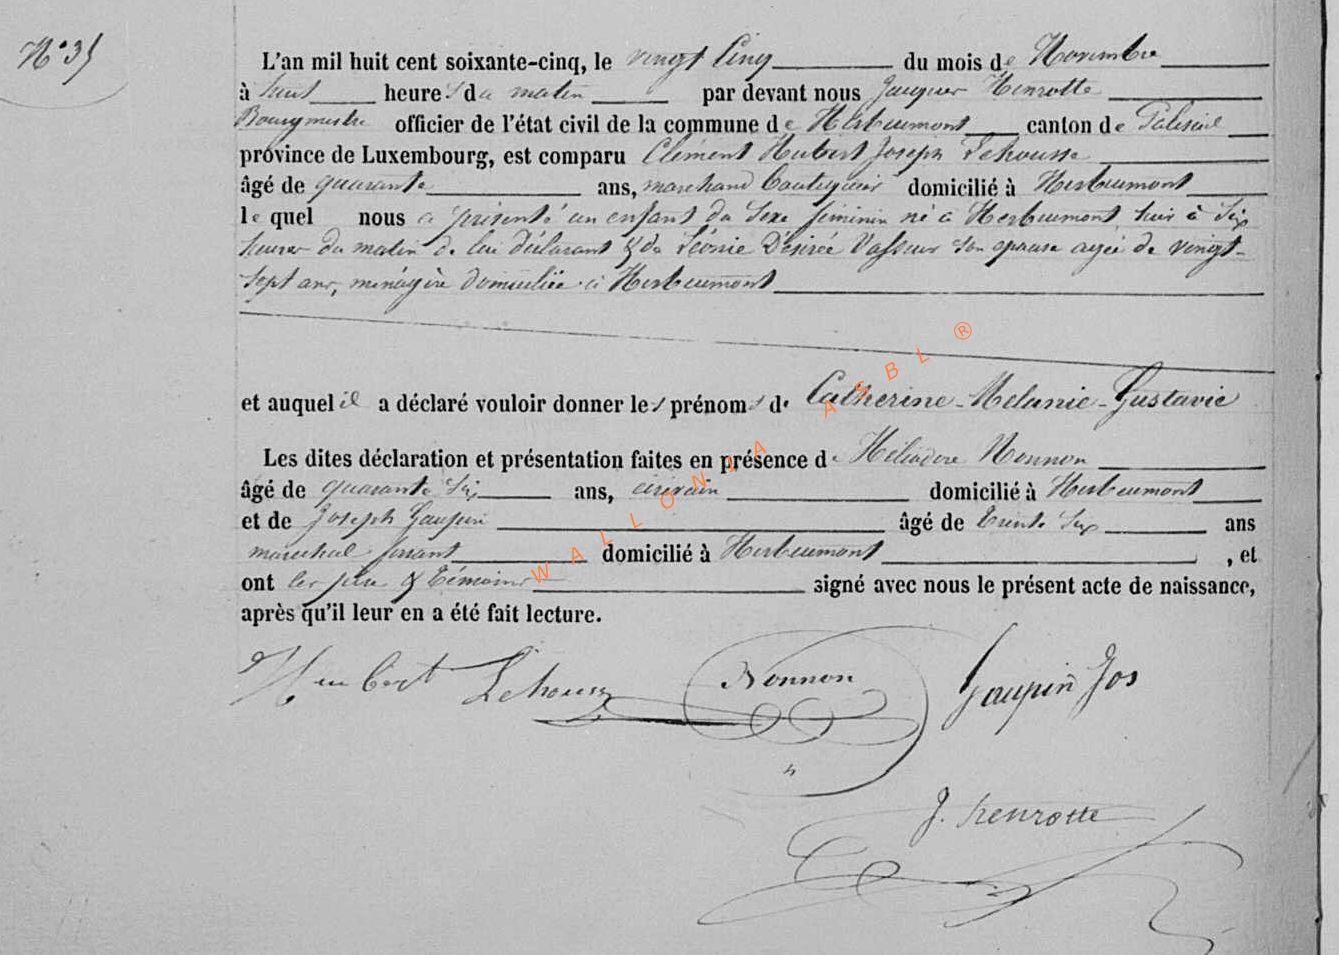 N° 35
L'an mil huit cent soixante-cinq, le vingt Cinq du mois de Novembre
à huit heures du matin par devant nous Jacques Henrotte
Bourgmestre officier de l'état civil de la commune de Herbeumont canton de Paliseul
province de Luxembourg, est comparu Clément Hubert Joseph Lehousse
âgé de quarante ans, marchand boutiquier domicilié à Herbeumont
lequel nous a présenté un enfant du Sexe féminin né à Herbeumont hier à Six
heures du matin de lui déclarant & de Léonie Désirée Vasseur son épouse agée de vingt-
sept ans, ménagère domiciliée à Herbeumont
et auquel il a déclaré vouloir donner les prénoms de Catherine-Mélanie-Gustavie
Les dites déclaration et présentation faites en présence de Héliodore Nonnon
âgé de quarante Six ans, écrivain domicilié à Herbeumont
et de Joseph Gaupin âgé de trente Six ans
maréchal ferrant domicilié à Herbeumont , et
ont les père & témoins signé avec nous le présent acte de naissance,
après qu'il leur en a été fait lecture.
Humbert Lehousse Nonnon Gaupin Jos
J. Henrotte
WALLONIA ASBL ®